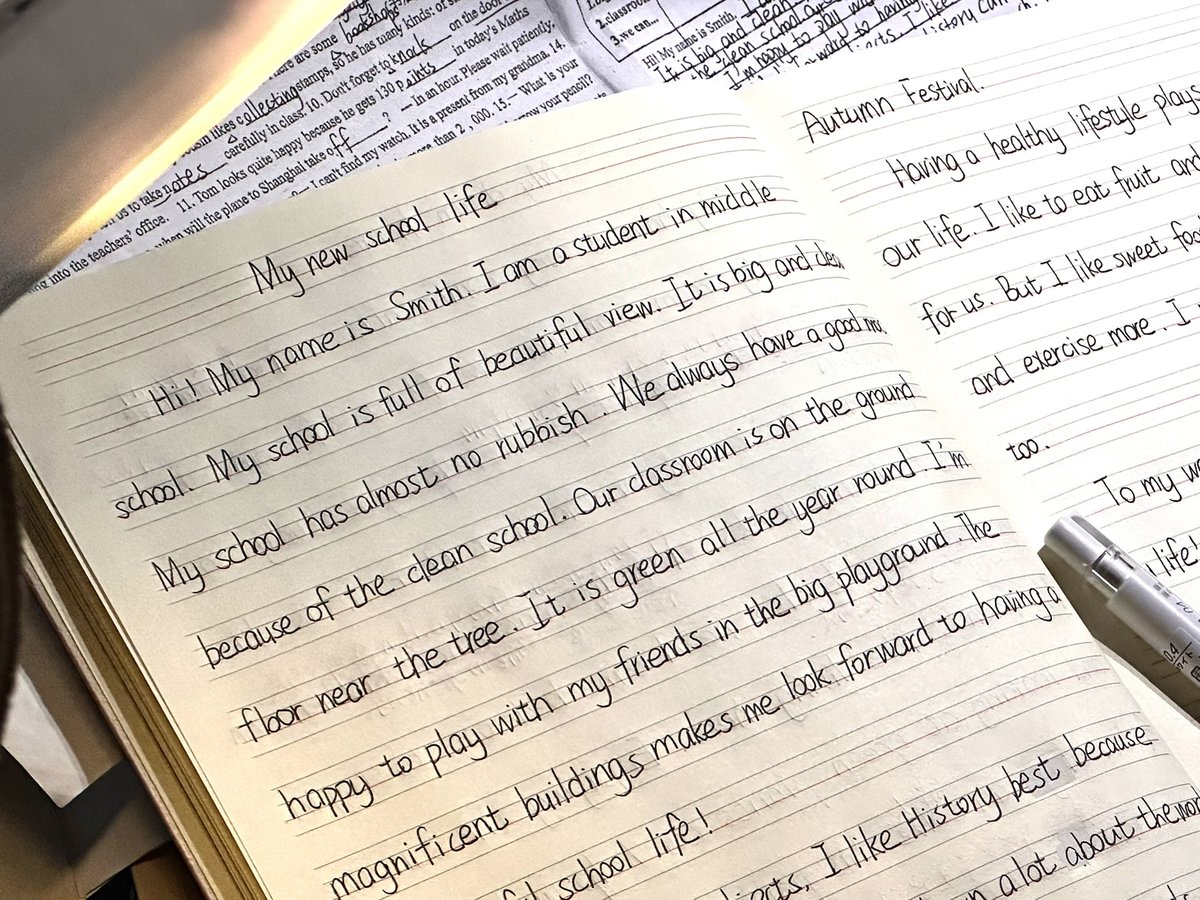 here are some bookshops
likes collecting stamps, so he has many kinds: of
on the door
carefully in class. 10. Don't forget to knock
us to take notes
in today's Maths
ing into the teachers' office. 11. Tom looks quite happy because he gets 130 points
when will the plane to Shanghai take off ? — In an hour. Please wait patiently.
I can't find my watch, it is a present from my grandma. 14.
more than 2,000. 15. — What is your
your pencil?
2.classroom
3.we can...
Hi! My name is Smith. I
It is big and clean
the clean school
I'm happy to play
ward to having
I like
My new school life
Hi! My name is Smith. I am a student in middle
school. My school is full of beautiful view. It is big and
My school has almost no rubbish. We always have a good
because of the clean school. Our classroom is on the ground
floor near the tree. It is green all the year round. I'm
happy to play with my friends in the big playground. The
magnificent buildings makes me look forward to having a
school life!
I like History best because
a lot about the
Autumn Festival.
Having a healthy lifestyle plays
our life. I like to eat fruit and
for us. But I like sweet
and exercise more. I
too.
To my
life!
0.4